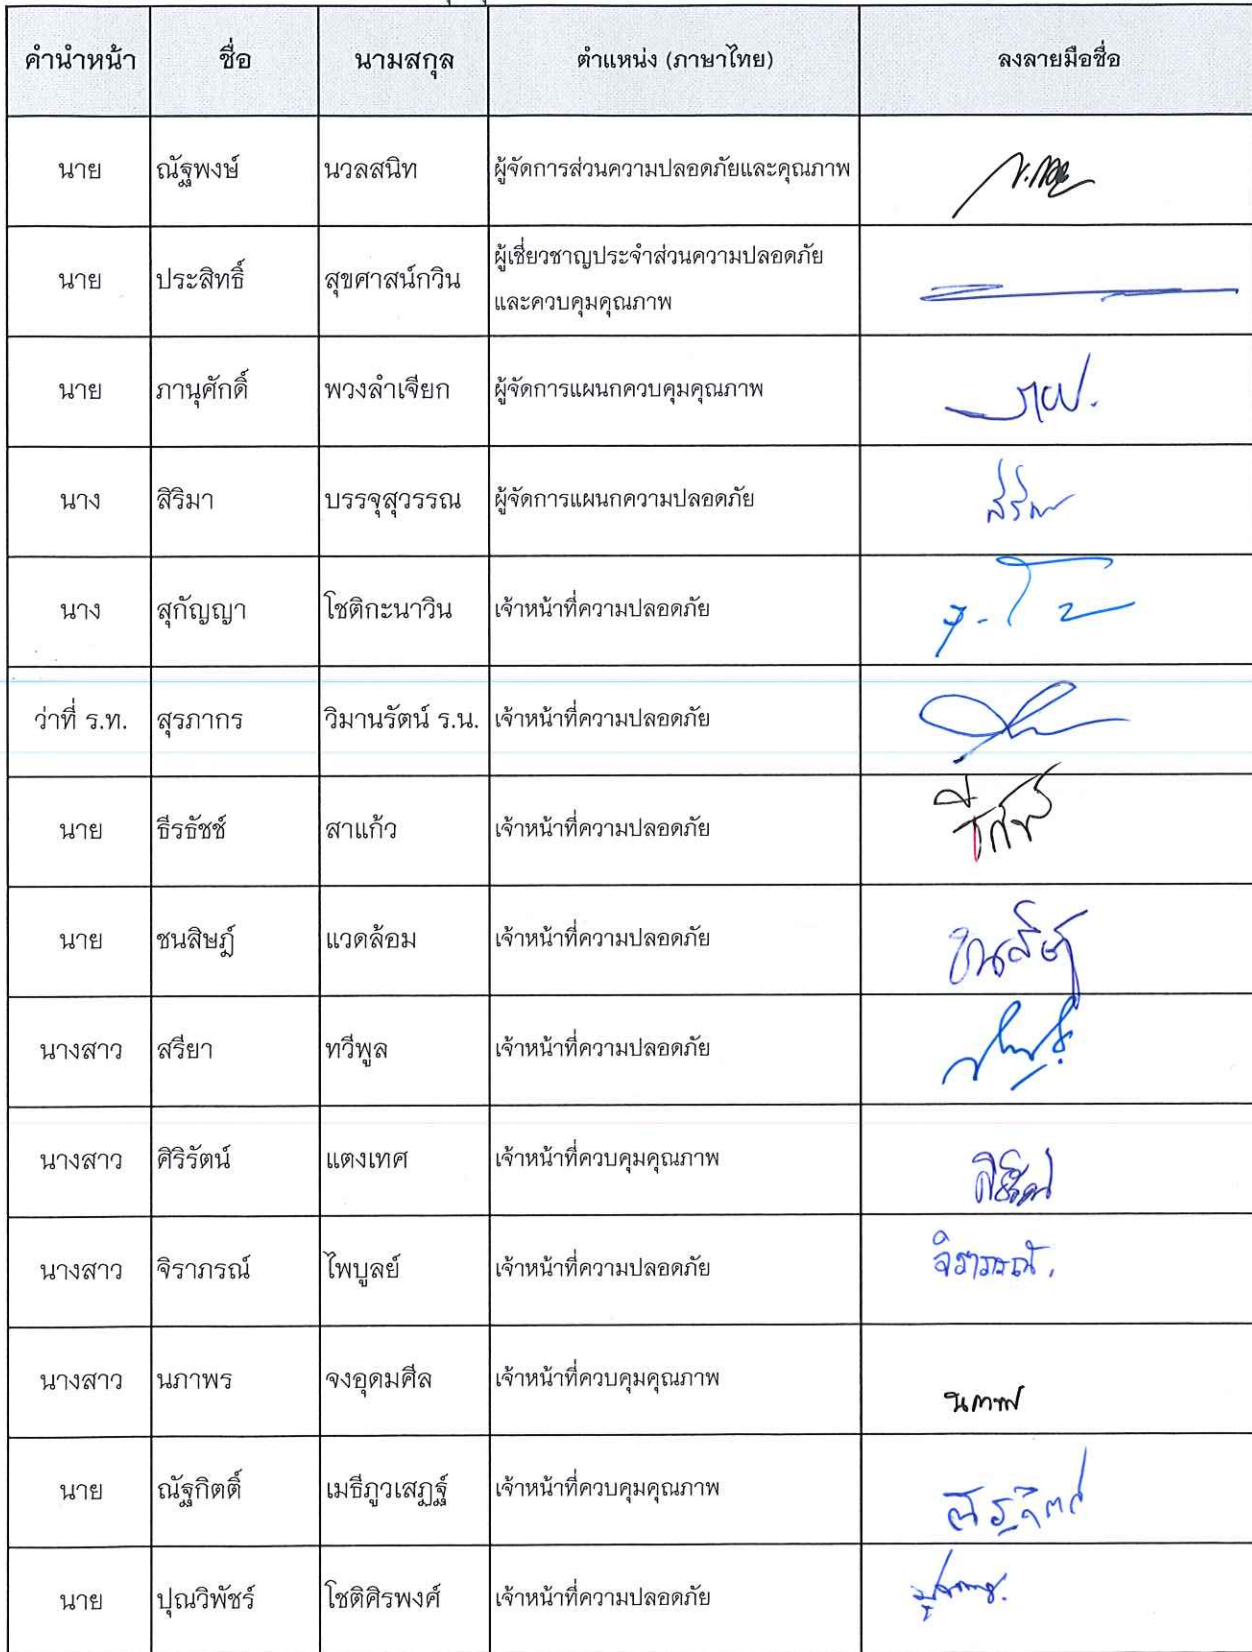 คำนำหน้า ชื่อ นามสกุล ตำแหน่ง (ภาษาไทย) ลงลายมือชื่อ
นาย ณัฐพงษ์ นวลสนิท ผู้จัดการส่วนความปลอดภัยและคุณภาพ
นาย ประสิทธิ์ สุขศาสน์กวิน ผู้เชี่ยวชาญประจำส่วนความปลอดภัย
และควบคุมคุณภาพ
นาย ภานุศักดิ์ พวงลำเจียก ผู้จัดการแผนกควบคุมคุณภาพ
นาง สิริมา บรรจุสุวรรณ ผู้จัดการแผนกความปลอดภัย
นาง สุกัญญา โชติกะนาวิน เจ้าหน้าที่ความปลอดภัย
ว่าที่ ร.ท. สุรภากร วิมานรัตน์ ร.น. เจ้าหน้าที่ความปลอดภัย
นาย ธีรธัชช์ สาแก้ว เจ้าหน้าที่ความปลอดภัย
นาย ชนสิษฎ์ แวดล้อม เจ้าหน้าที่ความปลอดภัย ชนสิษฎ์
นางสาว สรียา ทวีพูล เจ้าหน้าที่ความปลอดภัย
นางสาว ศิริรัตน์ แตงเทศ เจ้าหน้าที่ควบคุมคุณภาพ
นางสาว จิราภรณ์ ไพบูลย์ เจ้าหน้าที่ความปลอดภัย จิราภรณ์.
นางสาว นภาพร จงอุดมศีล เจ้าหน้าที่ควบคุมคุณภาพ นภาพร
นาย ณัฐกิตติ์ เมธีภูวเสฏฐ์ เจ้าหน้าที่ควบคุมคุณภาพ ณัฐกิตติ์
นาย ปุณวิพัชร์ โชติศิรพงศ์ เจ้าหน้าที่ความปลอดภัย